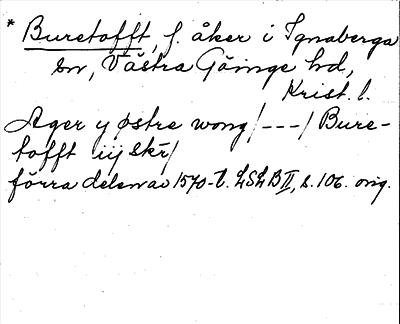 * Buretofft, f. åker i Ignaberga
sn, Västra Göinge hd,
Krist. l.
Ager y østre wong /---/ Bure-
tofft iij skr/
förra delen av 1570-t. LSLB II, s. 106. orig.